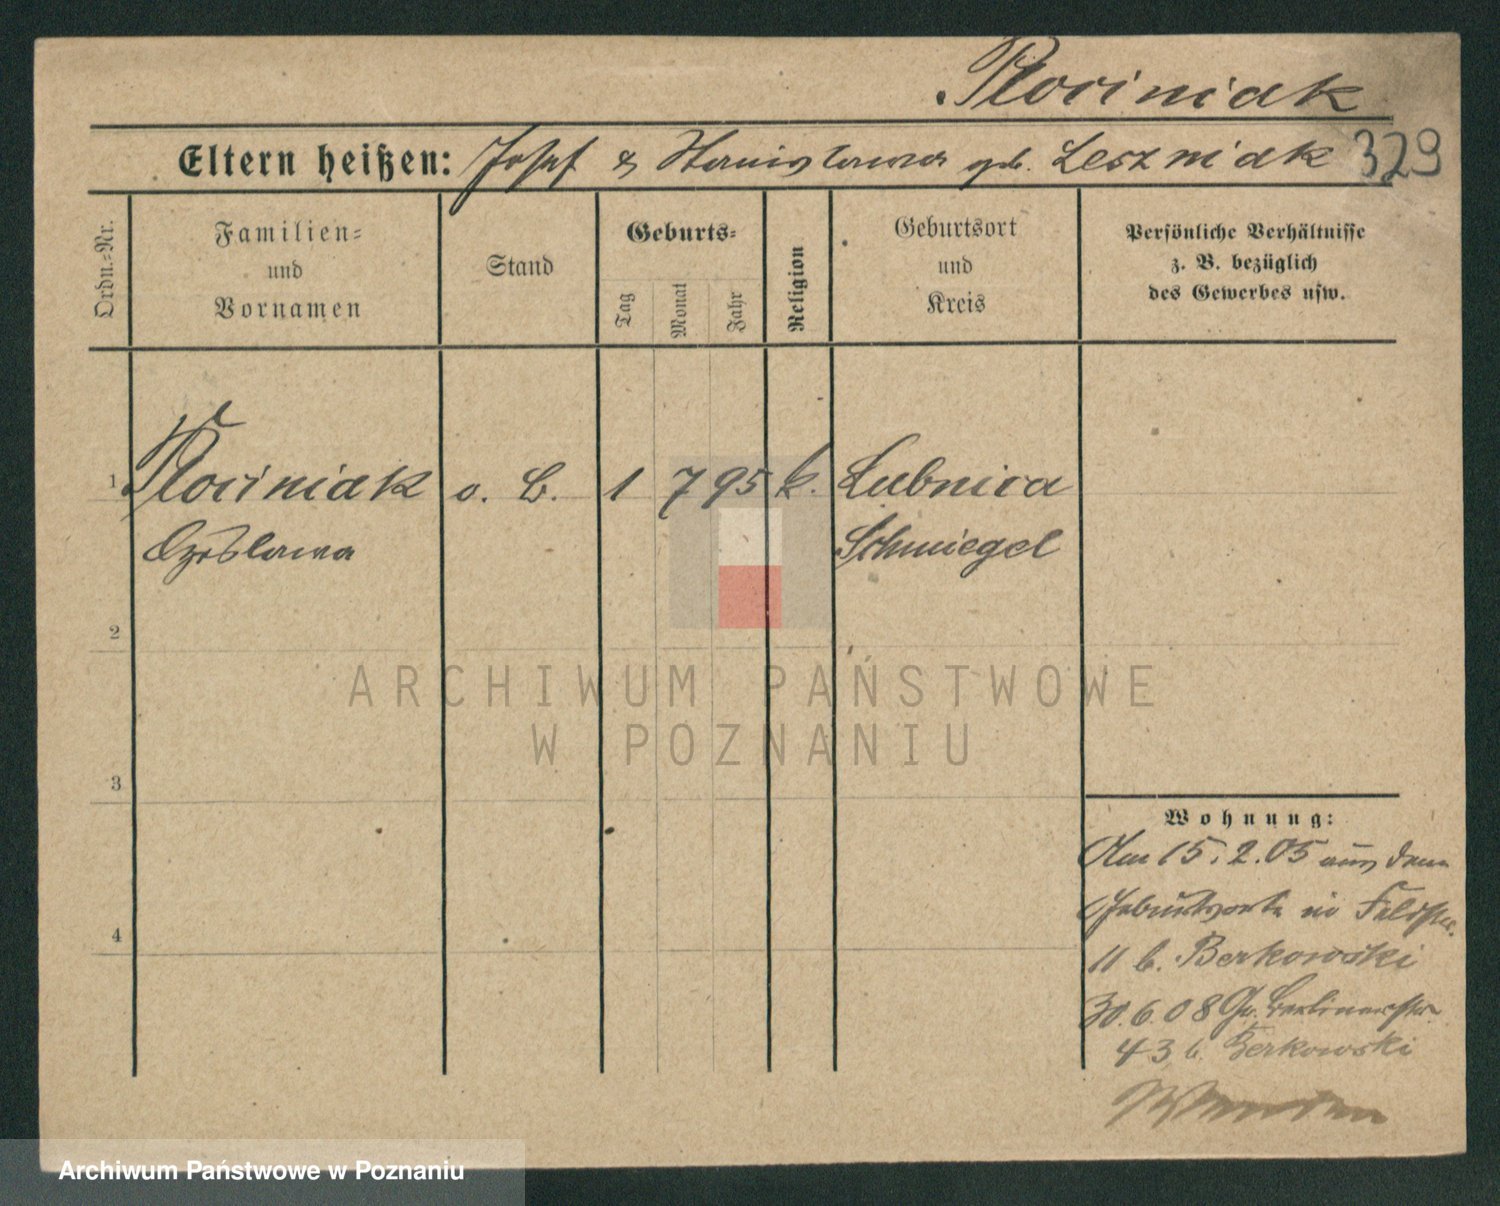 Plociniak
Eltern heißen: Josef & Stanislawa geb. Leszniak 329
Ordn.-Nr.
Familien- und Vornamen
Stand
Geburts-
Tag
Monat
Jahr
Religion
Geburtsort und Kreis
Persönliche Verhältnisse
z. B. bezüglich
des Gewerbes usw.
1 Plociniak o. B. 1 7 95 k. Lubnica
Czeslawa Schmiegel
2
3
4
Wohnung:
Am 15.2.05 aus dem
Geburtsorte in Feldstr.
11 b. Berkowski
30.6.08 Gr. Berlinerstr.
43 b. Berkowski
ARCHIWUM PAŃSTWOWE
W POZNANIU
Archiwum Państwowe w Poznaniu